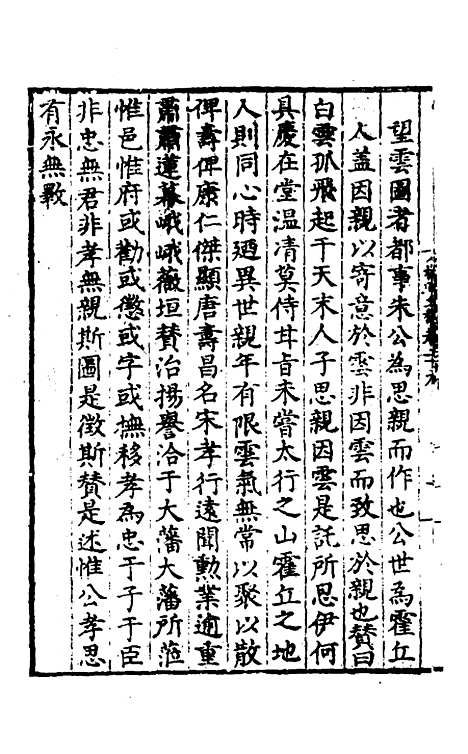 望雲圖者都事朱公為思親而作也公世為霍丘
人蓋因親以寄意於雲非因雲而致思於親也賛曰
白雲孤飛起于天末人子思親因雲是託所思伊何
具慶在堂温清莫侍甘旨未嘗太行之山霍丘之地
人則同心時廼異世親年有限雲氣無常以聚以散
俾壽俾康仁傑顯唐壽昌名宋孝行遠聞勲業逾重
肅肅蓮幕峨峨薇垣賛治揚譽洽于大藩大藩所蒞
惟邑惟府或勸或懲或字或撫移孝為忠于子于臣
非忠無君非孝無親斯圖是徴斯賛是述惟公孝思
有永無斁